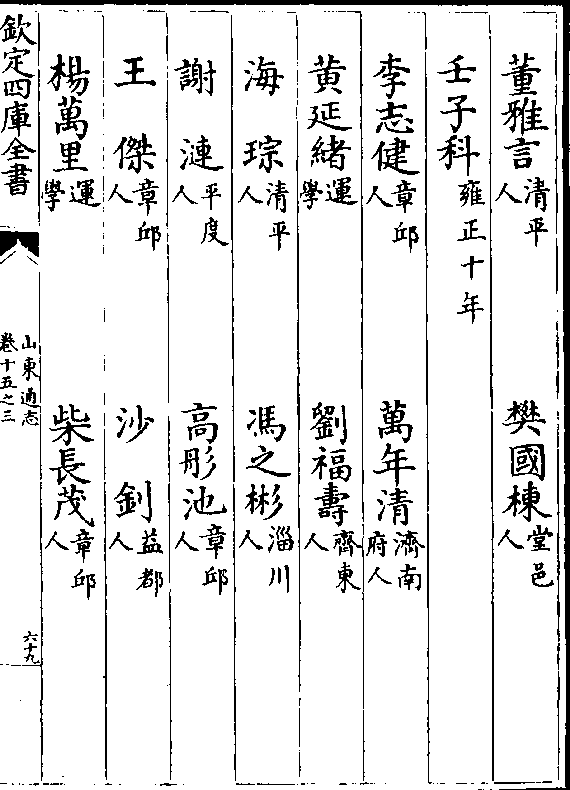 董雅言清平人　樊國棟堂邑人
壬子科雍正十年
李志健章邱人　萬年清濟南府人
黄延緒運學　劉福壽齊東人
海琮清平人　馮之彬淄川人
謝漣平度人　高彤池章邱人
王傑章邱人　沙釗益都人
楊萬里運學　柴長茂章邱人
欽定四庫全書
山東通志
卷十五之三
六十九